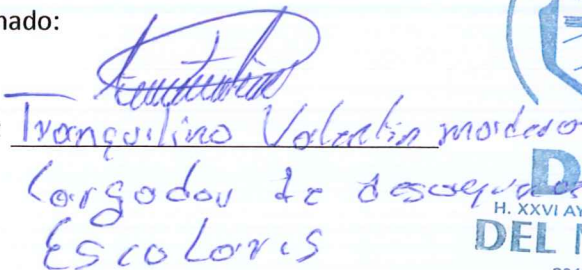 nado:
Tranquilino Valentin
Cargador de desayunos
Escolares
D
H. XXVI AY
DEL